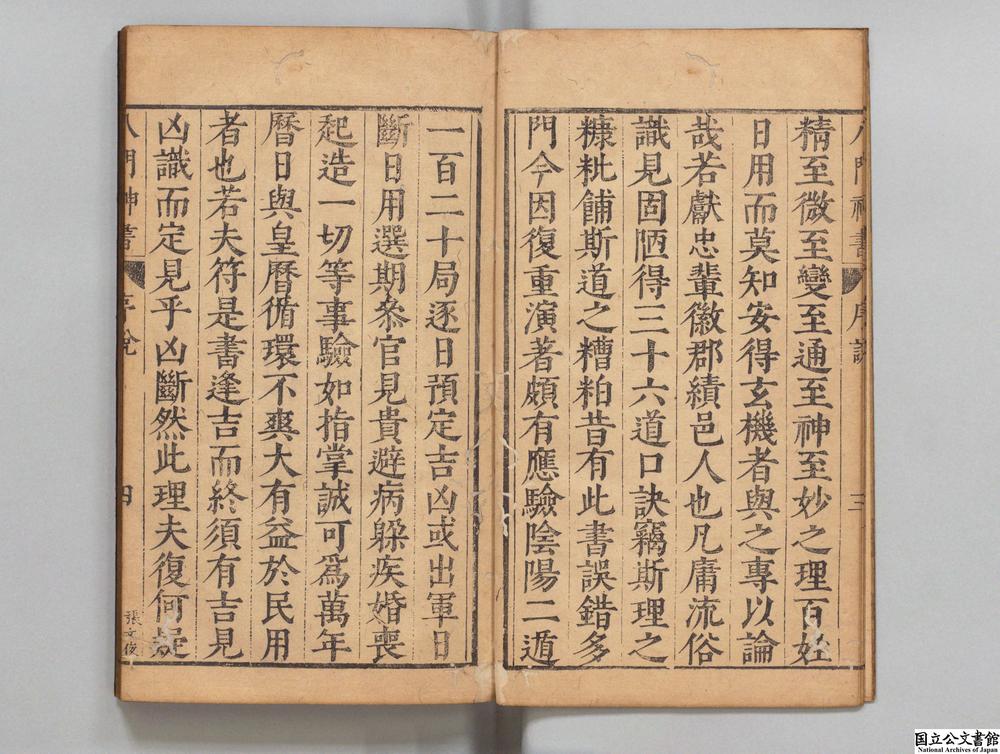 八門神書
序說
三
精至微至變至通至神至妙之理百姓
日用而莫知安得玄機者與之專以論
哉若獻忠輩徽郡績邑人也凡庸流俗
識見固陋得三十六道口訣竊斯理之
糠粃餔斯道之糟粕昔有此書誤錯多
門今因復重演著頗有應驗陰陽二遁
一百二十局逐日預定吉凶或出軍日
斷日用選期叅官見貴避病躱疾婚喪
起造一切等事驗如指掌誠可爲萬年
曆日與皇曆循環不爽大有益於民用
者也若夫符是書逢吉而終須有吉見
凶識而定見乎凶斷然此理夫復何疑
八門神書
序說
四
國立公文書館
National Archives of Japan